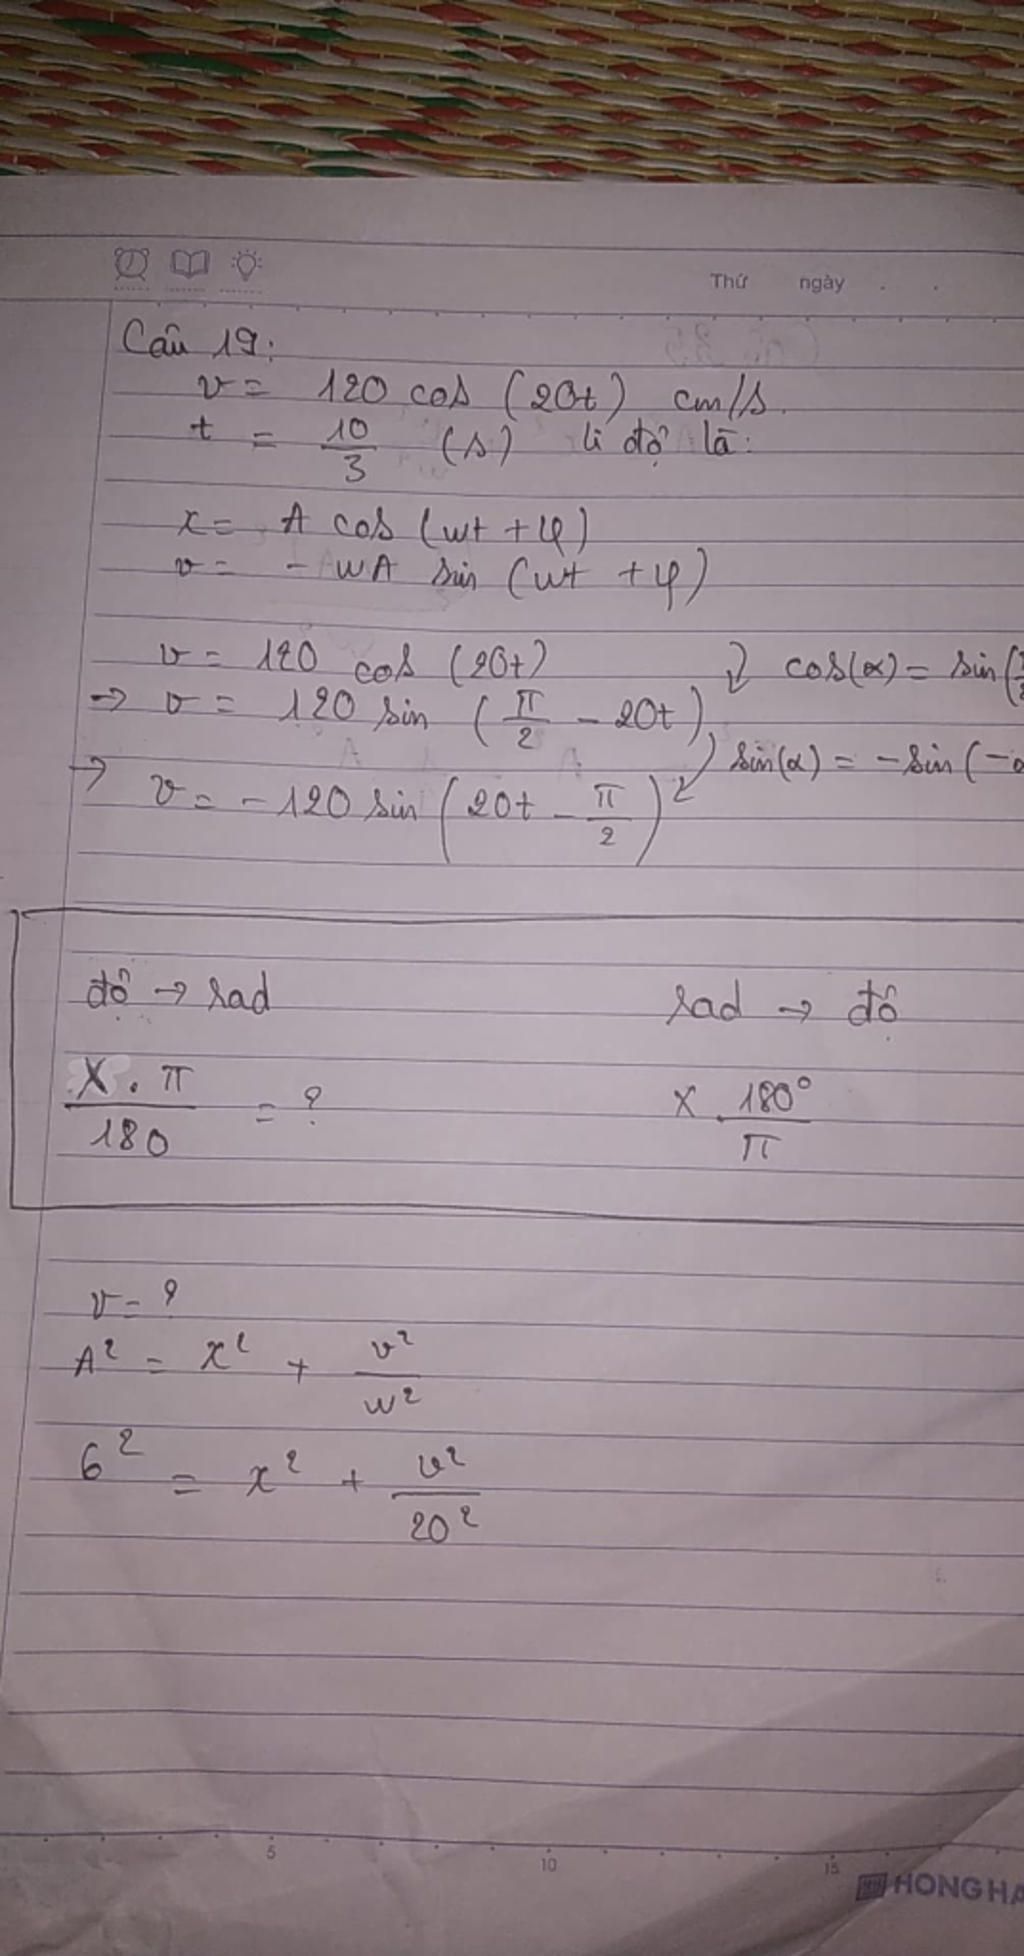 Thứ ngày
Câu 19:
v = 120 cos (20t) cm/s.
t = 10/3 (s) li độ là:
x = A cos (wt + φ)
v = - wA sin (wt + φ)
v = 120 cos (20t) cos(α) = sin(
→ v = 120 sin (π/2 - 20t)
sin(α) = -sin(-α
→ v = -120 sin (20t - π/2)
độ → rad rad → độ
X . π / 180 = ? X . 180° / π
v = ?
A² = x² + v²/w²
6² = x² + v²/20²
5 10 15
HONG HA